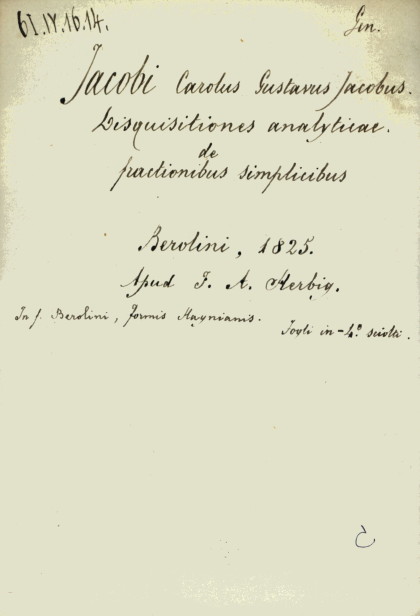 61.IV.16.14.
Gen.
Jacobi Carolus Gustavus Jacobus.
Disquisitiones analyticae.
de
fractionibus simplicibus
Berolini, 1825.
Apud F. A. Herbig.
In f. Berolini, formis Haynianis.
Fogli in-4° sciolti.